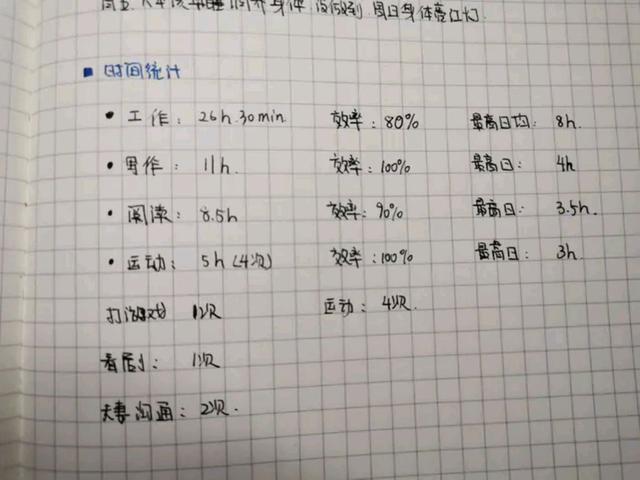 身体 没做到 周日身体亮红灯.
■ 时间统计
• 工作: 26h 30min. 效率: 80% 最高日均: 8h.
• 写作: 11h. 效率: 100% 最高日: 4h
• 阅读: 8.5h 效率: 90% 最高日: 3.5h.
• 运动: 5h (4次) 效率: 100% 最高日: 3h
打游戏 1次 运动: 4次.
看剧: 1次
夫妻沟通: 2次.